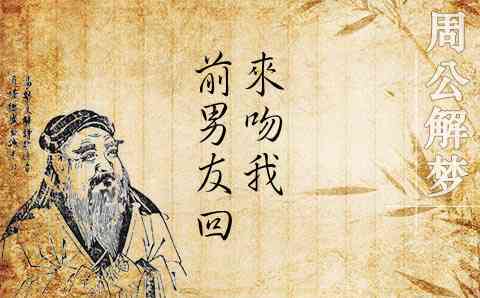 周公解梦
來吻我
前男友回